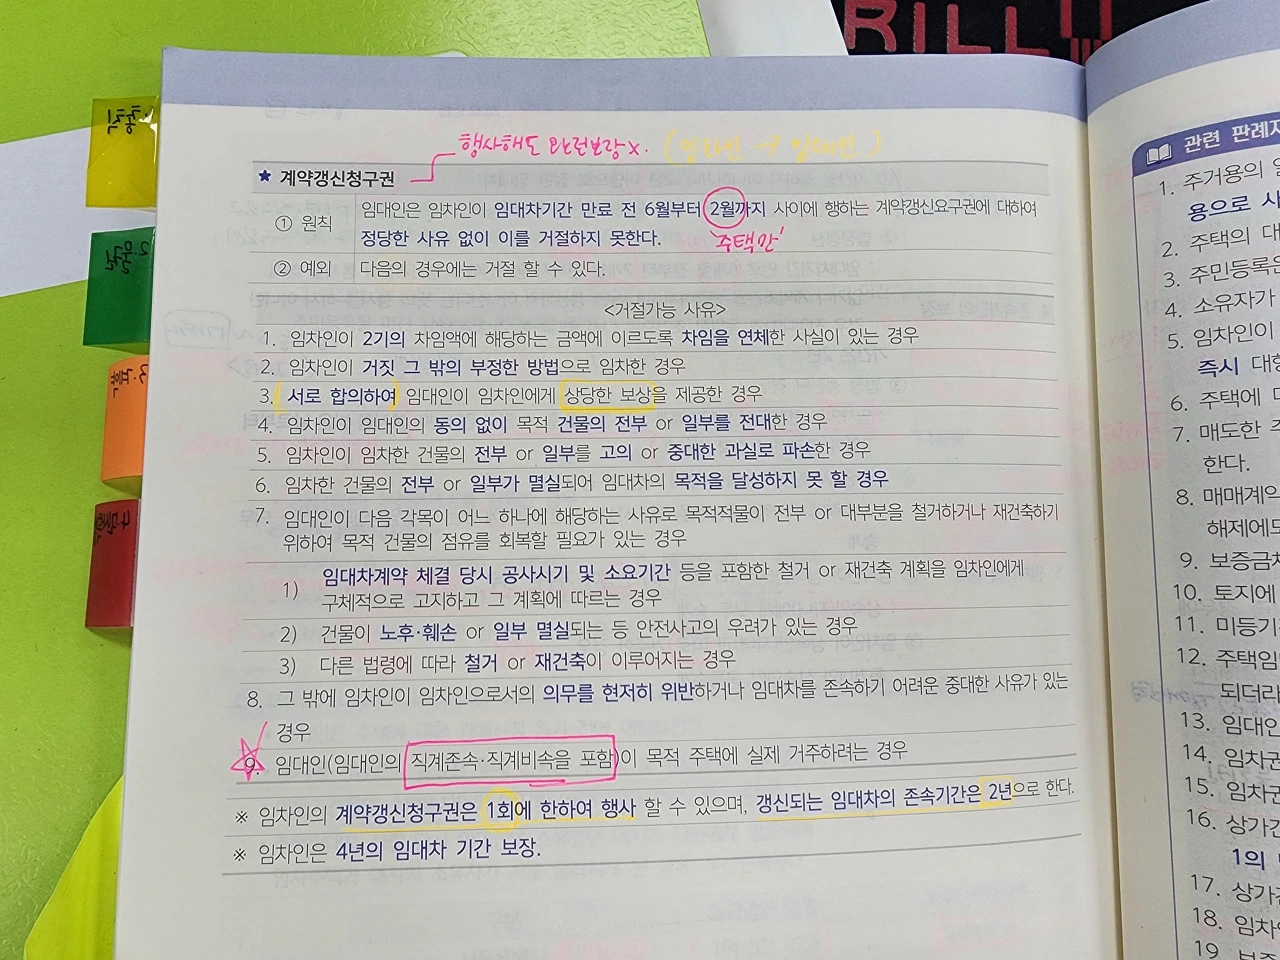 BILL
행사해도 안전보장 x. (임차인 → 임대인)
★ 계약갱신청구권
① 원칙
임대인은 임차인이 임대차기간 만료 전 6월부터 2월까지 사이에 행하는 계약갱신요구권에 대하여
정당한 사유 없이 이를 거절하지 못한다.
'주택만'
② 예외 다음의 경우에는 거절 할 수 있다.
<거절가능 사유>
1. 임차인이 2기의 차임액에 해당하는 금액에 이르도록 차임을 연체한 사실이 있는 경우
2. 임차인이 거짓 그 밖의 부정한 방법으로 임차한 경우
3. 서로 합의하여 임대인이 임차인에게 상당한 보상을 제공한 경우
4. 임차인이 임대인의 동의 없이 목적 건물의 전부 or 일부를 전대한 경우
5. 임차인이 임차한 건물의 전부 or 일부를 고의 or 중대한 과실로 파손한 경우
6. 임차한 건물의 전부 or 일부가 멸실되어 임대차의 목적을 달성하지 못 할 경우
7. 임대인이 다음 각목이 어느 하나에 해당하는 사유로 목적적물이 전부 or 대부분을 철거하거나 재건축하기
위하여 목적 건물의 점유를 회복할 필요가 있는 경우
1) 임대차계약 체결 당시 공사시기 및 소요기간 등을 포함한 철거 or 재건축 계획을 임차인에게
구체적으로 고지하고 그 계획에 따르는 경우
2) 건물이 노후·훼손 or 일부 멸실되는 등 안전사고의 우려가 있는 경우
3) 다른 법령에 따라 철거 or 재건축이 이루어지는 경우
8. 그 밖에 임차인이 임차인으로서의 의무를 현저히 위반하거나 임대차를 존속하기 어려운 중대한 사유가 있는
경우
9. 임대인(임대인의 직계존속·직계비속을 포함)이 목적 주택에 실제 거주하려는 경우
※ 임차인의 계약갱신청구권은 1회에 한하여 행사 할 수 있으며, 갱신되는 임대차의 존속기간은 2년으로 한다.
※ 임차인은 4년의 임대차 기간 보장.
관련 판례
1. 주거용의
용으로 사
2. 주택의 대
3. 주민등록은
4. 소유자가
5. 임차인이
즉시 대항
6. 주택에
7. 매도한
한다.
8. 매매계약
해제에도
9. 보증금
10. 토지에
11. 미등기
12. 주택임
되더라
13. 임대인
14. 임차권
15. 임차
16. 상가
1의
17. 상가
18. 임차
19